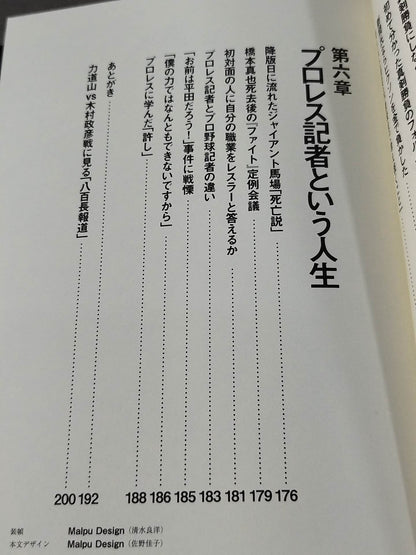 第六章
プロレス記者という人生
降版日に流れたジャイアント馬場「死亡説」……176
橋本真也死去後の「ファイト」定例会議……179
初対面の人に自分の職業をレスラーと答えるか……181
プロレス記者とプロ野球記者の違い……183
「お前は平田だろう！」事件に戦慄……185
「僕の力ではなんともできないですから」……186
プロレスに学んだ「許し」……188
あとがき……192
力道山 vs 木村政彦戦に見る「八百長報道」……200
装幀 Malpu Design（清水良洋）
本文デザイン Malpu Design（佐野佳子）